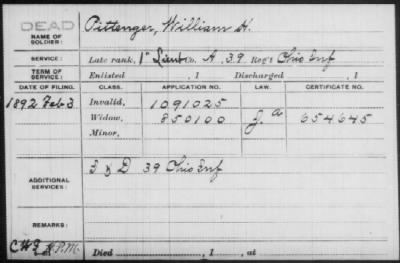 DEAD
NAME OF SOLDIER: Pittenger, William H.
SERVICE: Late rank, 1" Lieut Co. A, 39 Reg't Ohio Inf
TERM OF SERVICE: Enlisted , 1 Discharged , 1
DATE OF FILING. CLASS. APPLICATION NO. LAW. CERTIFICATE NO.
1892 Feb 3 Invalid, 1091025
Widow, 850100 J. a 654645
Minor,
ADDITIONAL SERVICES: I & D 39 Ohio Inf
REMARKS:
Died , 1 , at